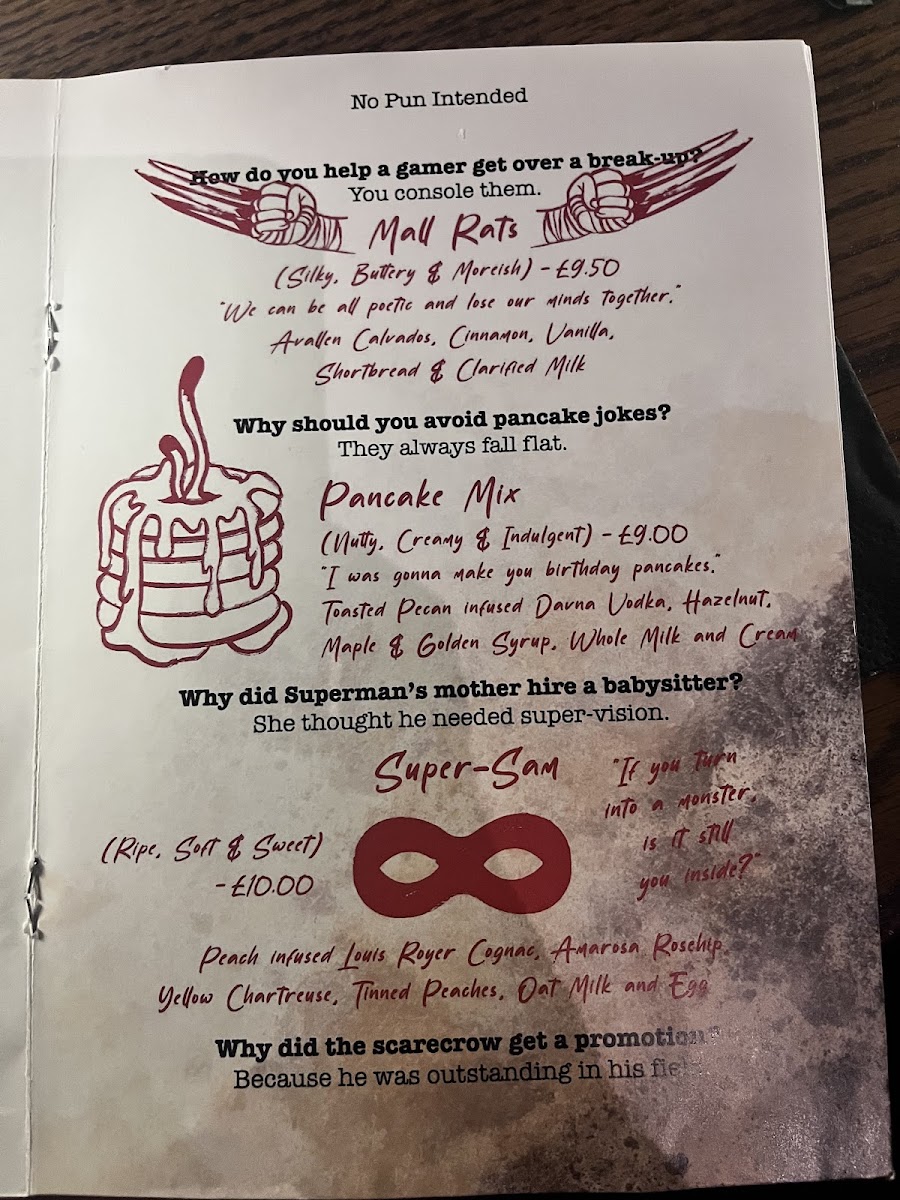 No Pun Intended
How do you help a gamer get over a break-up?
You console them.
Mall Rats
(Silky, Buttery & Moreish) - £9.50
"We can be all poetic and lose our minds together."
Avallen Calvados, Cinnamon, Vanilla,
Shortbread & Clarified Milk
Why should you avoid pancake jokes?
They always fall flat.
Pancake Mix
(Nutty, Creamy & Indulgent) - £9.00
"I was gonna make you birthday pancakes."
Toasted Pecan infused Davna Vodka, Hazelnut,
Maple & Golden Syrup, Whole Milk and Cream
Why did Superman's mother hire a babysitter?
She thought he needed super-vision.
Super-Sam
"If you turn
into a monster,
is it still
you inside?"
(Ripe, Soft & Sweet)
- £10.00
Peach infused Louis Royer Cognac, Amarosa Rosehip,
Yellow Chartreuse, Tinned Peaches, Oat Milk and Egg
Why did the scarecrow get a promotion?
Because he was outstanding in his field.